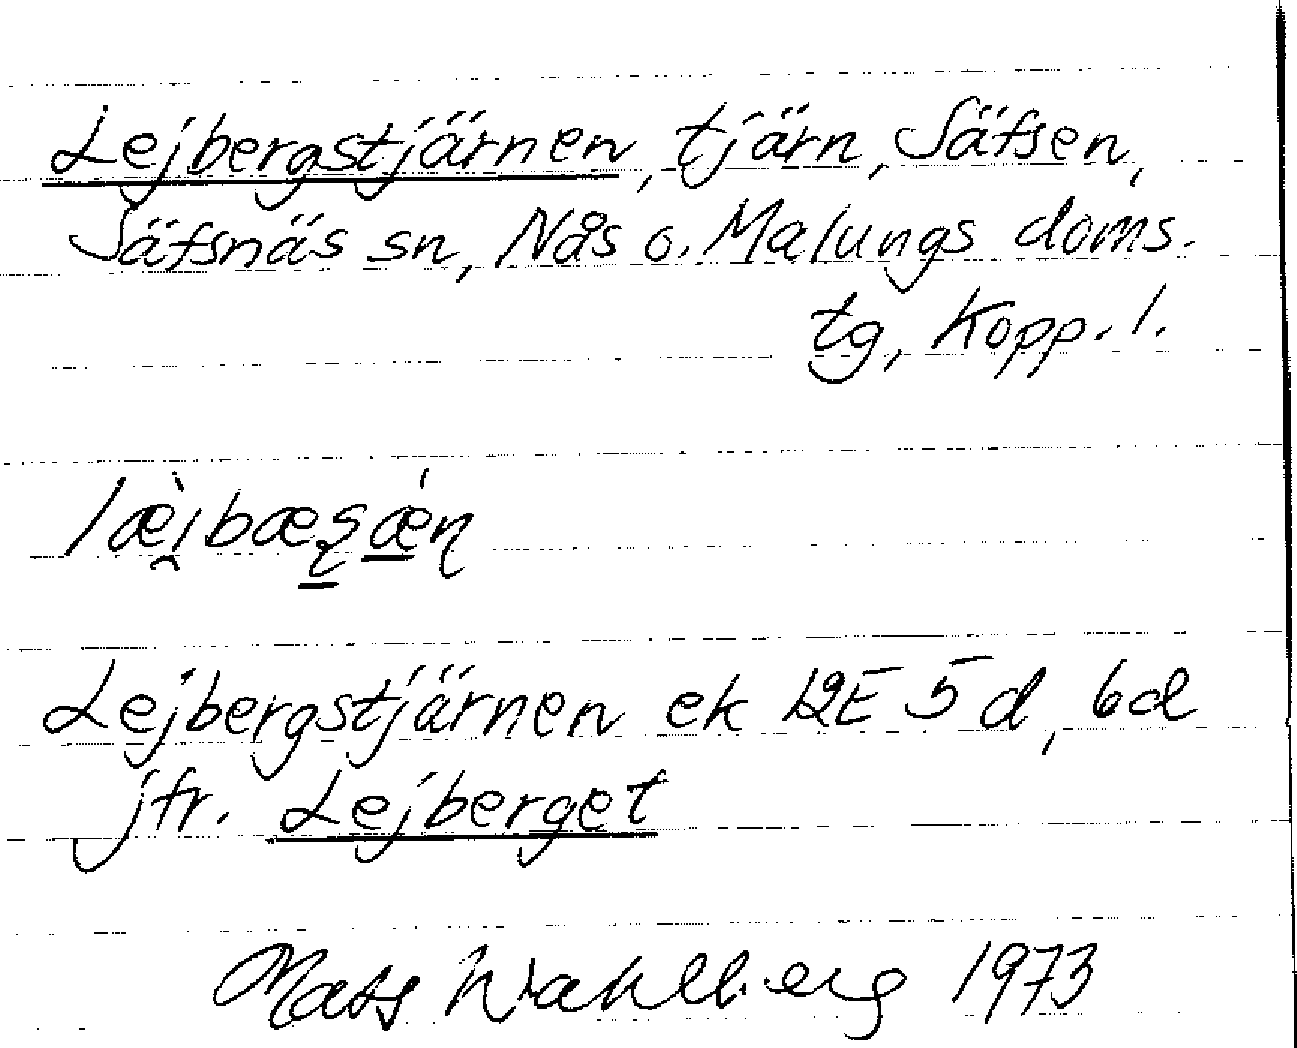 Lejbergstjärnen, tjärn, Säfsen,
Säfsnäs sn, Nås o. Malungs doms.
tg, Kopp. l.
Lejbergstjärnen ek 12E 5d, 6d
jfr. Lejberget
Mats Wahlberg 1973